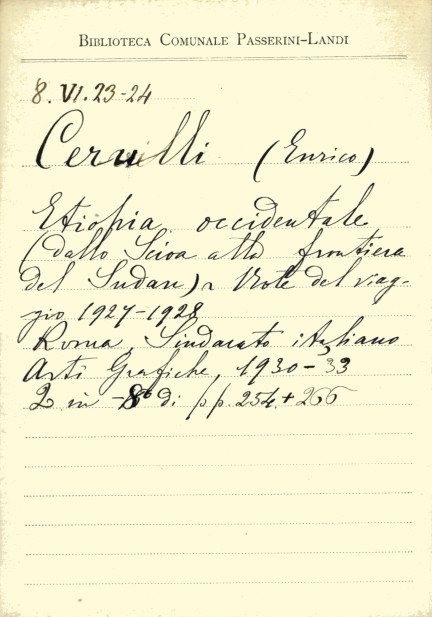 BIBLIOTECA COMUNALE PASSERINI-LANDI
8. VI. 23-24
Cerulli (Enrico)
Etiopia occidentale
(dallo Scioa alla frontiera
del Sudan) Note del viag-
gio 1927-1928
Roma, Sindacato italiano
Arti Grafiche, 1930-33
2 in -8° di pp. 254 + 266